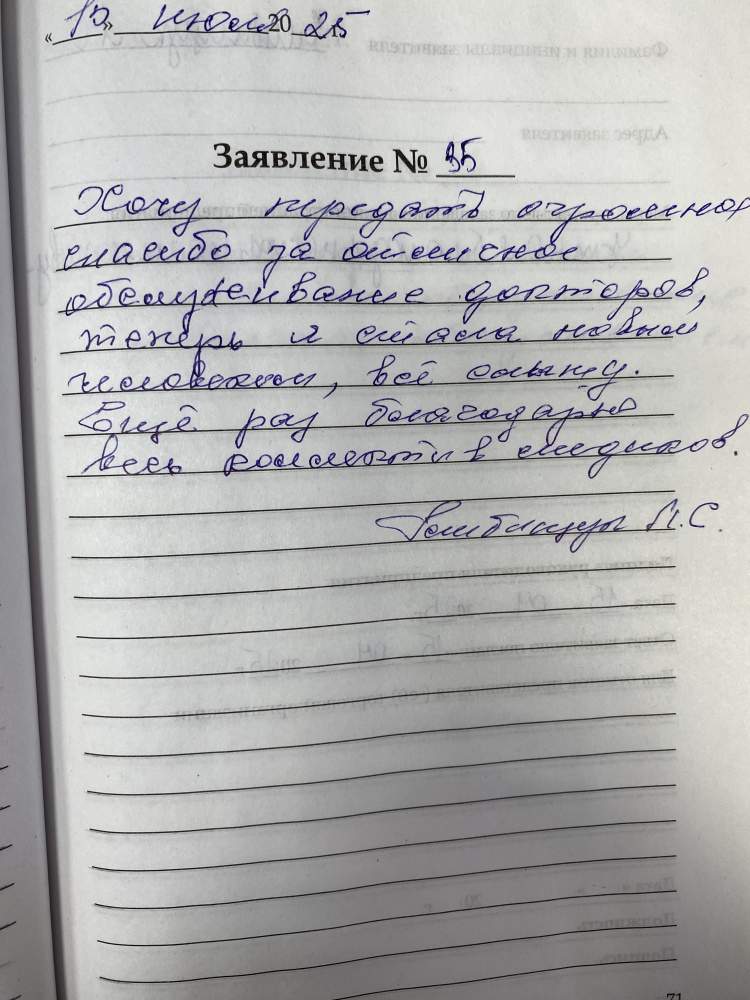 «10» июля 2025
Заявление № 35
Хочу передать огромное
спасибо за отличное
обслуживание докторов,
теперь я стала новым
человеком, всё слышу.
Ещё раз благодарю
весь коллектив медиков.
П.С.
71